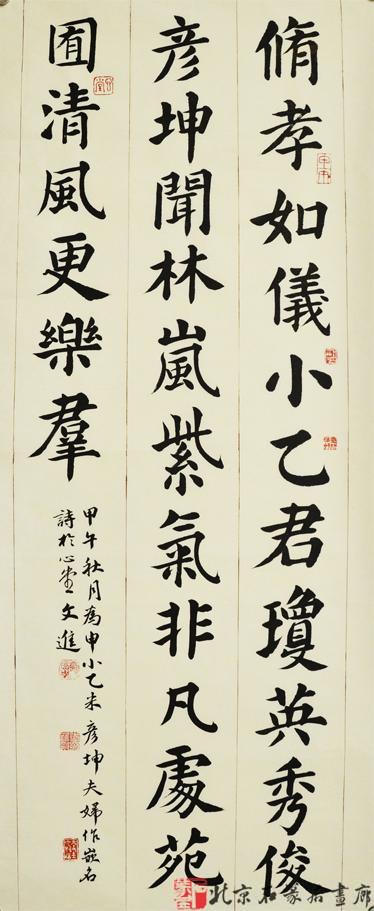 脩孝如儀小乙君瓊英秀俊
彦坤聞林嵐紫氣非凡處苑
囿清風更樂羣
甲午秋月為申小乙米彦坤夫婦作嵌名
詩於心堂文進
北京名家居画廊